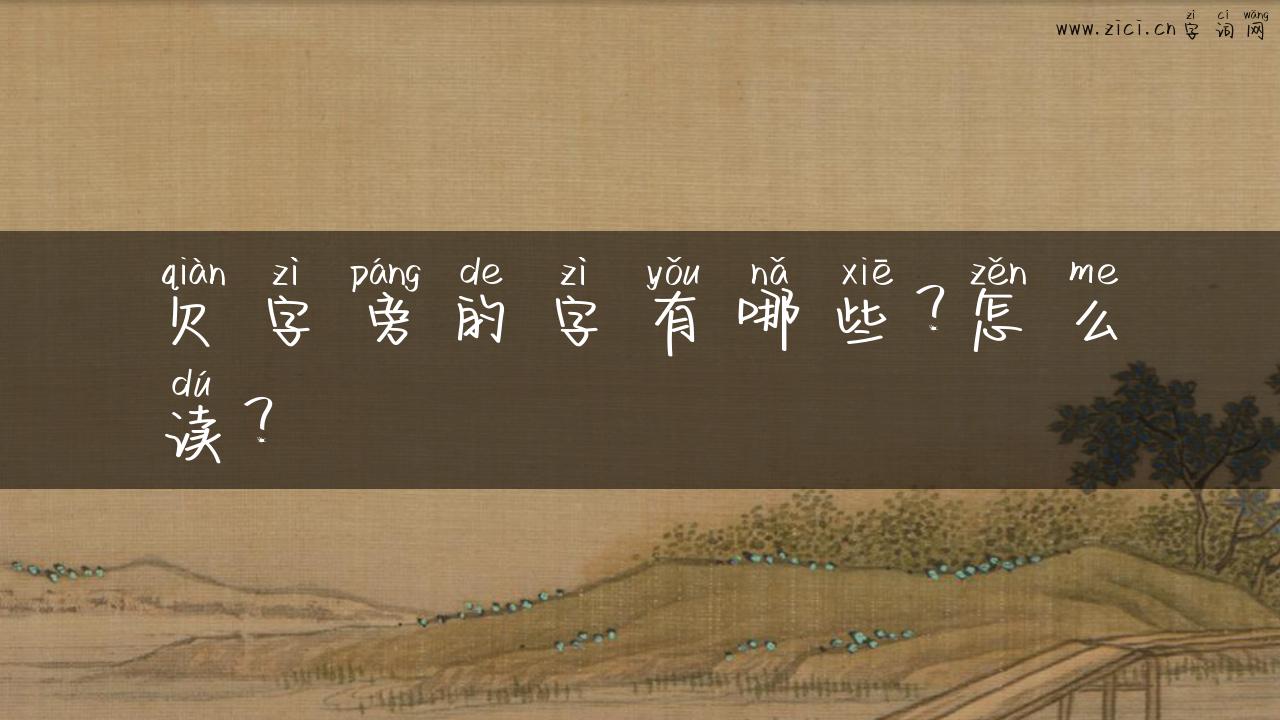 zì cí wǎng
www.zici.cn字词网
qiàn zì páng de zì yǒu nǎ xiē zěn me
欠字旁的字有哪些?怎么
dú
读?